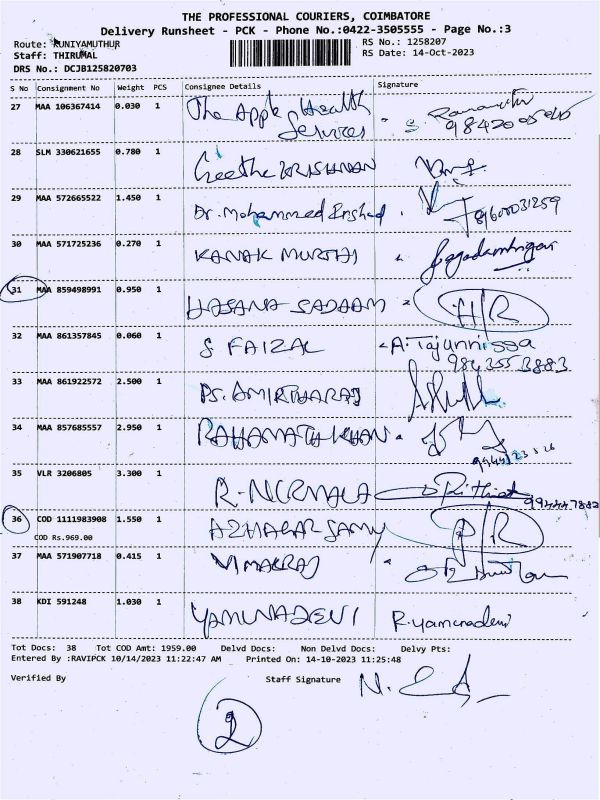 THE PROFESSIONAL COURIERS, COIMBATORE
Delivery Runsheet - PCK - Phone No.:0422-3505555 - Page No.:3
Route: KUNIYAMUTHUR
RS No.: 1258207
Staff: THIRUMAL
RS Date: 14-Oct-2023
DRS No.: DCJB125820703
S No Consignment No Weight PCS Consignee Details Signature
27 MAA 106367414 0.030 1 The Apple Health
Services
28 SLM 330621655 0.780 1 Geetha KRISHNAN
29 MAA 572665522 1.450 1 Dr. Mohammed Irshad
30 MAA 571725236 0.270 1 KANAK MURTHI
31 MAA 859498991 0.950 1 HASANA SADAAM
32 MAA 861357845 0.060 1 S. FAIZAL A. Tajunnissa
9843553883
33 MAA 861922572 2.500 1 Ps. AMIRTHARAJ
34 MAA 857685557 2.950 1 RAHAMATH KHAN
35 VLR 3206805 3.300 1 R. NIRMALA
36 COD 1111983908 1.550 1 AZHAGAR SAMY
COD Rs.969.00
37 MAA 571907718 0.415 1 VIMALRAJ
38 KDI 591248 1.030 1 YAMUNADEVI R. yamunadevi
Tot Docs: 38 Tot COD Amt: 1959.00 Delvd Docs: Non Delvd Docs: Delvy Pts:
Entered By :RAVIPCK 10/14/2023 11:22:47 AM Printed On: 14-10-2023 11:25:48
Verified By Staff Signature
2